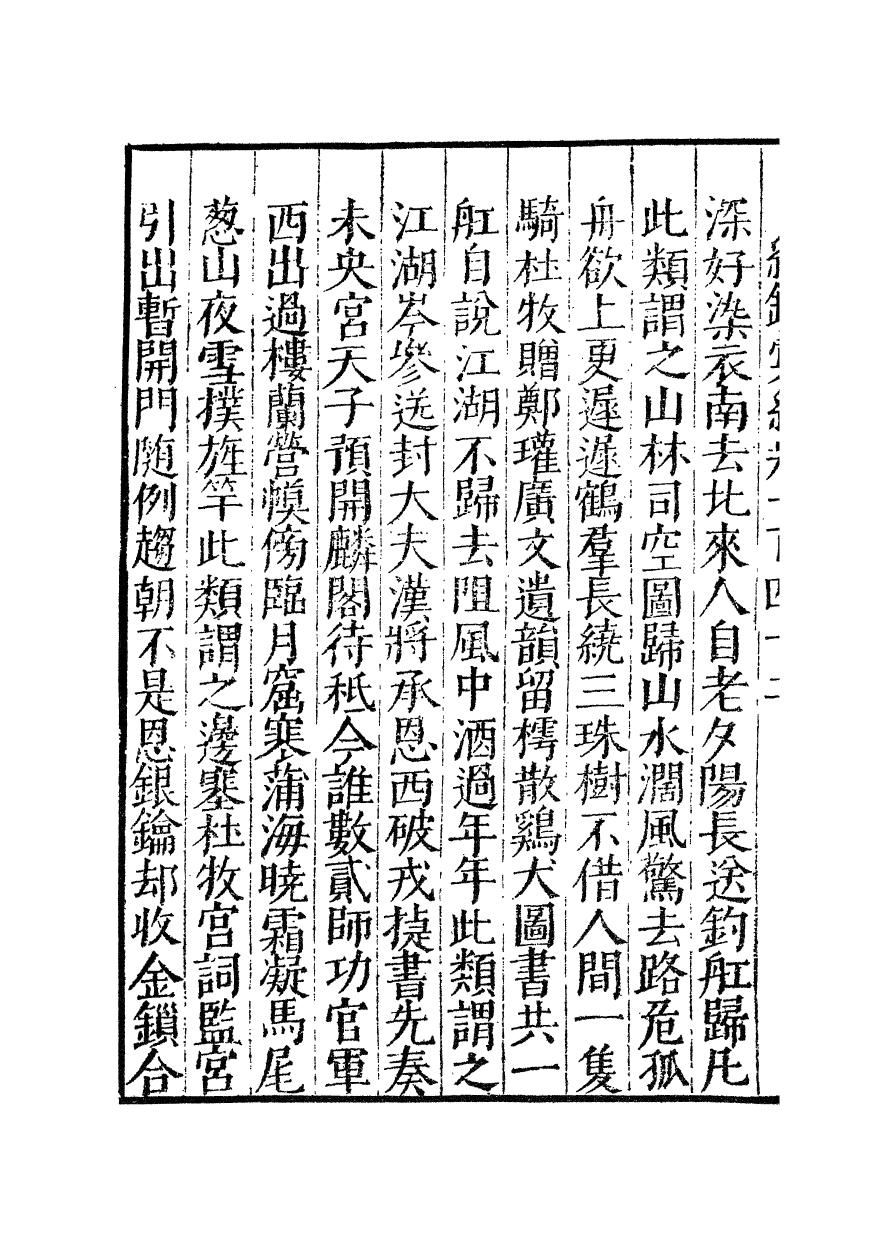 深好染衣南去北來人自老夕陽長送釣舡歸凡
此類謂之山林司空圖歸山水濶風驚去路危孤
舟欲上更遲遲鶴羣長繞三珠樹不借人間一隻
騎杜牧贈鄭瓘廣文遺韻留樗散鷄犬圖書共一
舡自說江湖不歸去阻風中酒過年年此類謂之
江湖岑參送封大夫漢將承恩西破戎㨗書先奏
未央宮天子預開麟閣待秖今誰數貳師功官軍
西出過樓蘭營幙傍臨月窟寒蒲海曉霜凝馬尾
葱山夜雪撲旌竿此類謂之邊塞杜牧宮詞監宮
引出暫開門随例趨朝不是恩銀鑰却收金鎖合